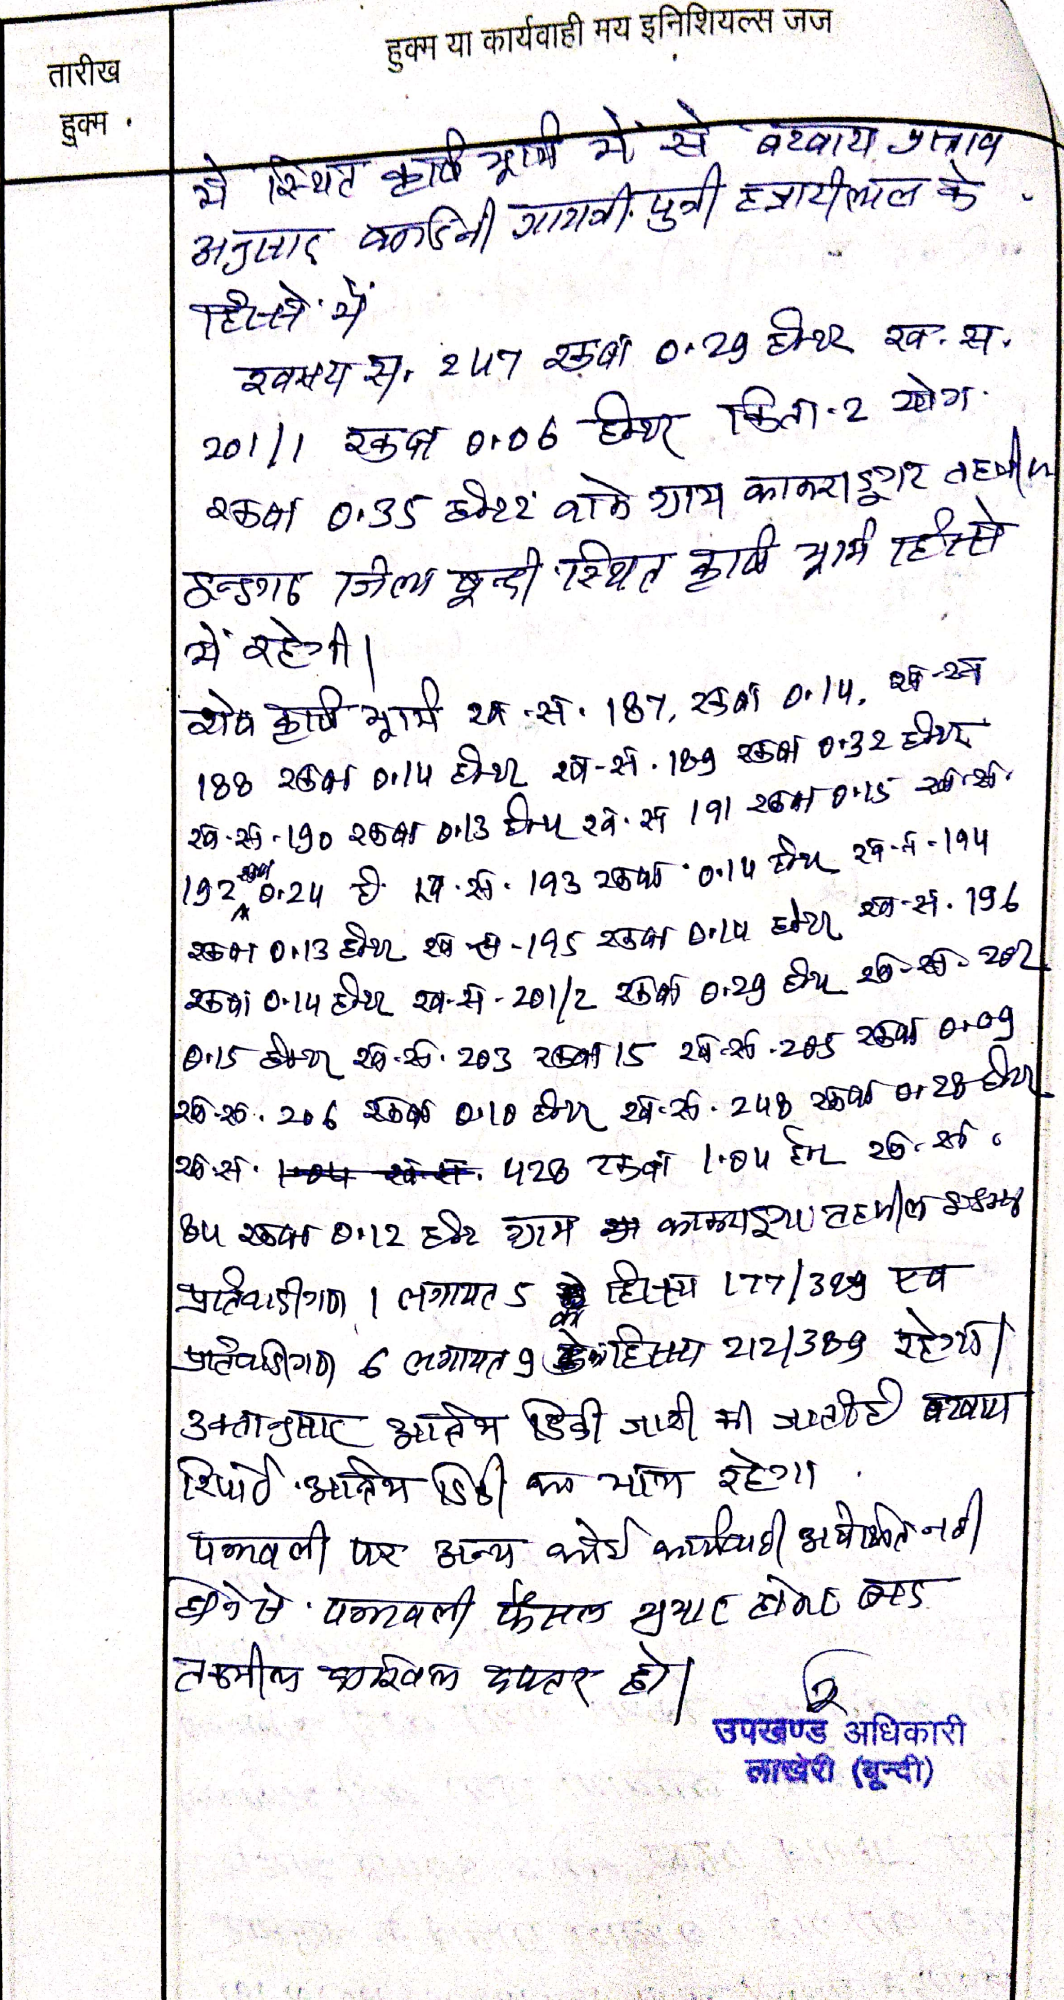 हुक्म या कार्यवाही मय इनिशियल्स जज
तारीख
हुक्म
में स्थित कृषि भूमि में से बंटवारा प्रस्ताव
अनुसार वादिनी गायत्री पुत्री हजारीलाल के
हिस्से में
खसरा स. 247 रकबा 0.29 हैक्टर ख.स.
201/1 रकबा 0.06 हैक्टर किता-2 योग
रकबा 0.35 हैक्टर वाके ग्राम काकराडूंगर तहसील
इन्द्रगढ जिला बून्दी स्थित कृषि भूमि हिस्से
में रहेगी।
शेष कृषि भूमि ख.स. 187, रकबा 0.14, ख.स
188 रकबा 0.14 हैक्टर ख.स. 189 रकबा 0.32 हैक्टर
ख.स. 190 रकबा 0.13 हैक्टर ख.स 191 रकबा 0.15 ख.स.
192 रकबा 0.24 है ख.स. 193 रकबा 0.14 हैक्टर ख.स. 194
रकबा 0.13 हैक्टर ख.स. 195 रकबा 0.14 हैक्टर ख.स. 196
रकबा 0.14 हैक्टर ख.स. 201/2 रकबा 0.29 हैक्टर ख.स. 202
0.15 हैक्टर ख.स. 203 रकबा 15 ख.स. 205 रकबा 0.09
ख.स. 206 रकबा 0.10 हैक्टर ख.स. 248 रकबा 0.28 हैक्टर
ख.स. 428 रकबा 1.04 हैक्टर ख.स.
84 रकबा 0.12 हैक्टर ग्राम काकराडूंगर तहसील इन्द्रगढ
प्रतिवादीगण 1 लगायत 5 का हिस्सा 177/389 एवं
प्रतिवादीगण 6 लगायत 9 का हिस्सा 212/389 रहेगा।
उक्तानुसार अन्तिम डिक्री जारी की जाती है बंटवारा
रिपोर्ट अन्तिम डिक्री का भाग रहेगा
पत्रावली पर अन्य कोई कार्यवाही अपेक्षित नही
होने से पत्रावली फैसल शुमार होकर बाद
तकमील दाखिल दफ्तर हो।
उपखण्ड अधिकारी
लाखेरी (बून्दी)